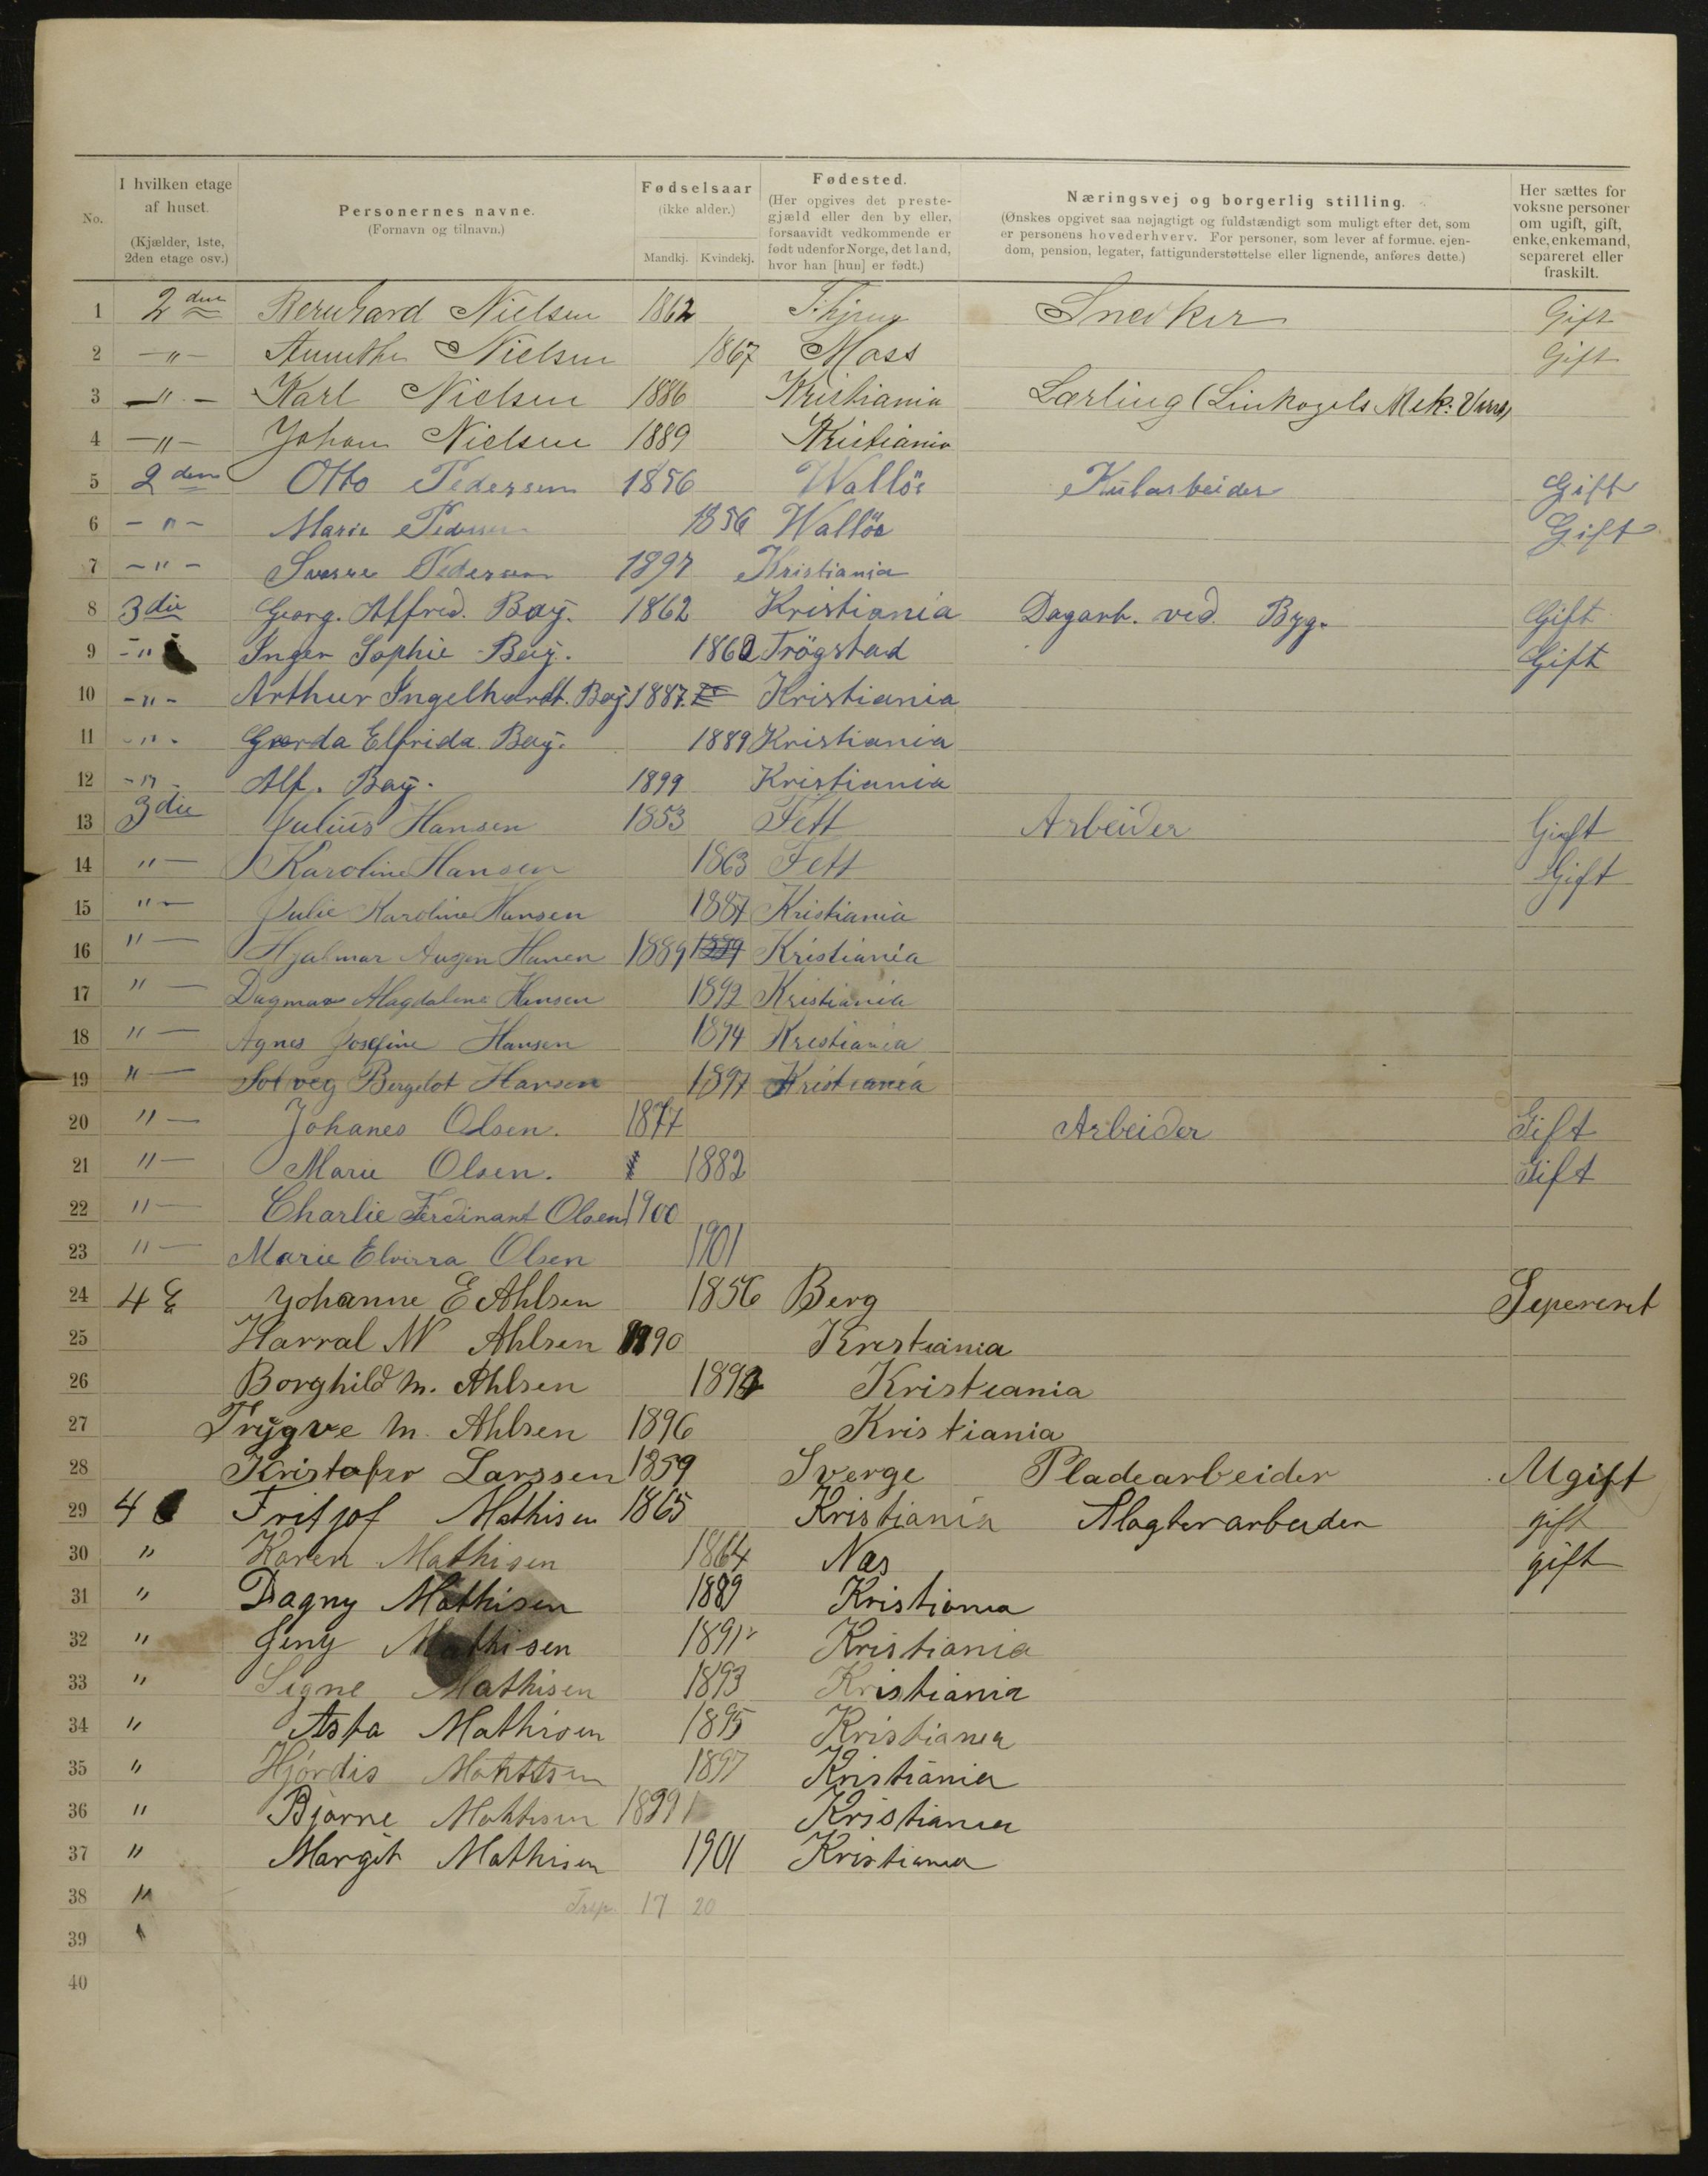 No.
I hvilken etage af huset. (Kjælder, 1ste, 2den etage osv.)
Personernes navne. (Fornavn og tilnavn.)
Fødselsaar (ikke alder.) Mandkj. Kvindekj.
Fødested. (Her opgives det prestegjæld eller den by eller, forsaavidt vedkommende er født udenfor Norge, det land, hvor han [hun] er født.)
Næringsvej og borgerlig stilling. (Ønskes opgivet saa nøjagtigt og fuldstændigt som muligt efter det, som er personens hovederhverv. For personer, som lever af formue, ejendom, pension, legater, fattigunderstøttelse eller lignende, anføres dette.)
Her sættes for voksne personer om ugift, gift, enke, enkemand, separeret eller fraskilt.
1 2den Bernhard Nielsen 1862 Snedker Gift
2 -"- Nielsen 1867 Moss Gift
3 -"- Karl Nielsen 1886 Kristiania Lærling Mek:
4 -"- Johan Nielsen 1889 Kristiania
5 2den Otto Pedersen 1856 Wallöe Kularbeider Gift
6 -"- Marie Pedersen 1856 Wallöe Gift
7 -"- Sverre Pedersen 1897 Kristiania
8 3die Georg. Alfred. Bay. 1862 Kristiania Dagarb. ved. Byg. Gift
9 -"- Inger Sophie Bay. Trögstad Gift
10 -"- Arthur Ingelhardt. Bay. 1887. Kristiania
11 -"- Gerda Elfrida. Bay. 1889 Kristiania
12 -"- Alf. Bay. 1899 Kristiania
13 3die Julius Hansen 1853 Fett Arbeider Gift
14 "- Karoline Hansen 1863 Fett Gift
15 "- Julie Karoline Hansen 1887 Kristiania
16 "- Hjalmar Hansen 1889 1889 Kristiania
17 "- Dagmar Magdalene Hansen 1892 Kristiania
18 "- Agnes Josefine Hansen 1894 Kristiania
19 "- Solveg Bergelot Hansen 1897 Kristiania
20 "- Johanes Olsen. 1877 Arbeider Gift
21 "- Marie Olsen. 1882 Gift
22 "- Charlie Ferdinant Olsen 1900
23 "- Marie Elvirra Olsen 1901
24 4 E Johanne E Ahlsen 1856 Berg Sepereret
25 Harral N Ahlsen 1890 Kristiania
26 Borghild M. Ahlsen Kristiania
27 Trygve M. Ahlsen 1896 Kristiania
28 Kristofer Larssen 1859 Sverge Pladearbeider Ugift
29 4 Fritjof Mathisen 1865 Kristiania Slagterarbeider gift
30 " Karen Mathisen 1864 Nas gift
31 " Dagny Mathisen 1889 Kristiania
32 " Jeny Mathisen 1891 Kristiania
33 " Signe Mathisen 1893 Kristiania
34 " Asta Mathisen 1895 Kristiania
35 " Hjördis Mathisen 1897 Kristiania
36 " Bjarne Mathisen 1899 Kristiania
37 " Margit Mathisen 1901 Kristiania
38 " 17 20
39
40